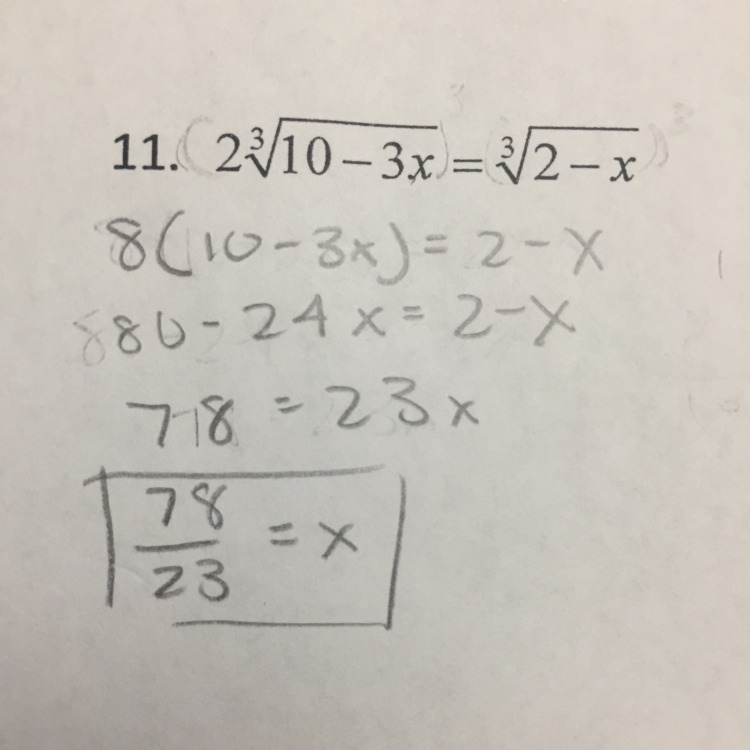 11. (2∛10 – 3x)³ = (∛2 – x)³
8(10 - 3x) = 2 - x
80 - 24x = 2 - x
78 = 23x
78/23 = x